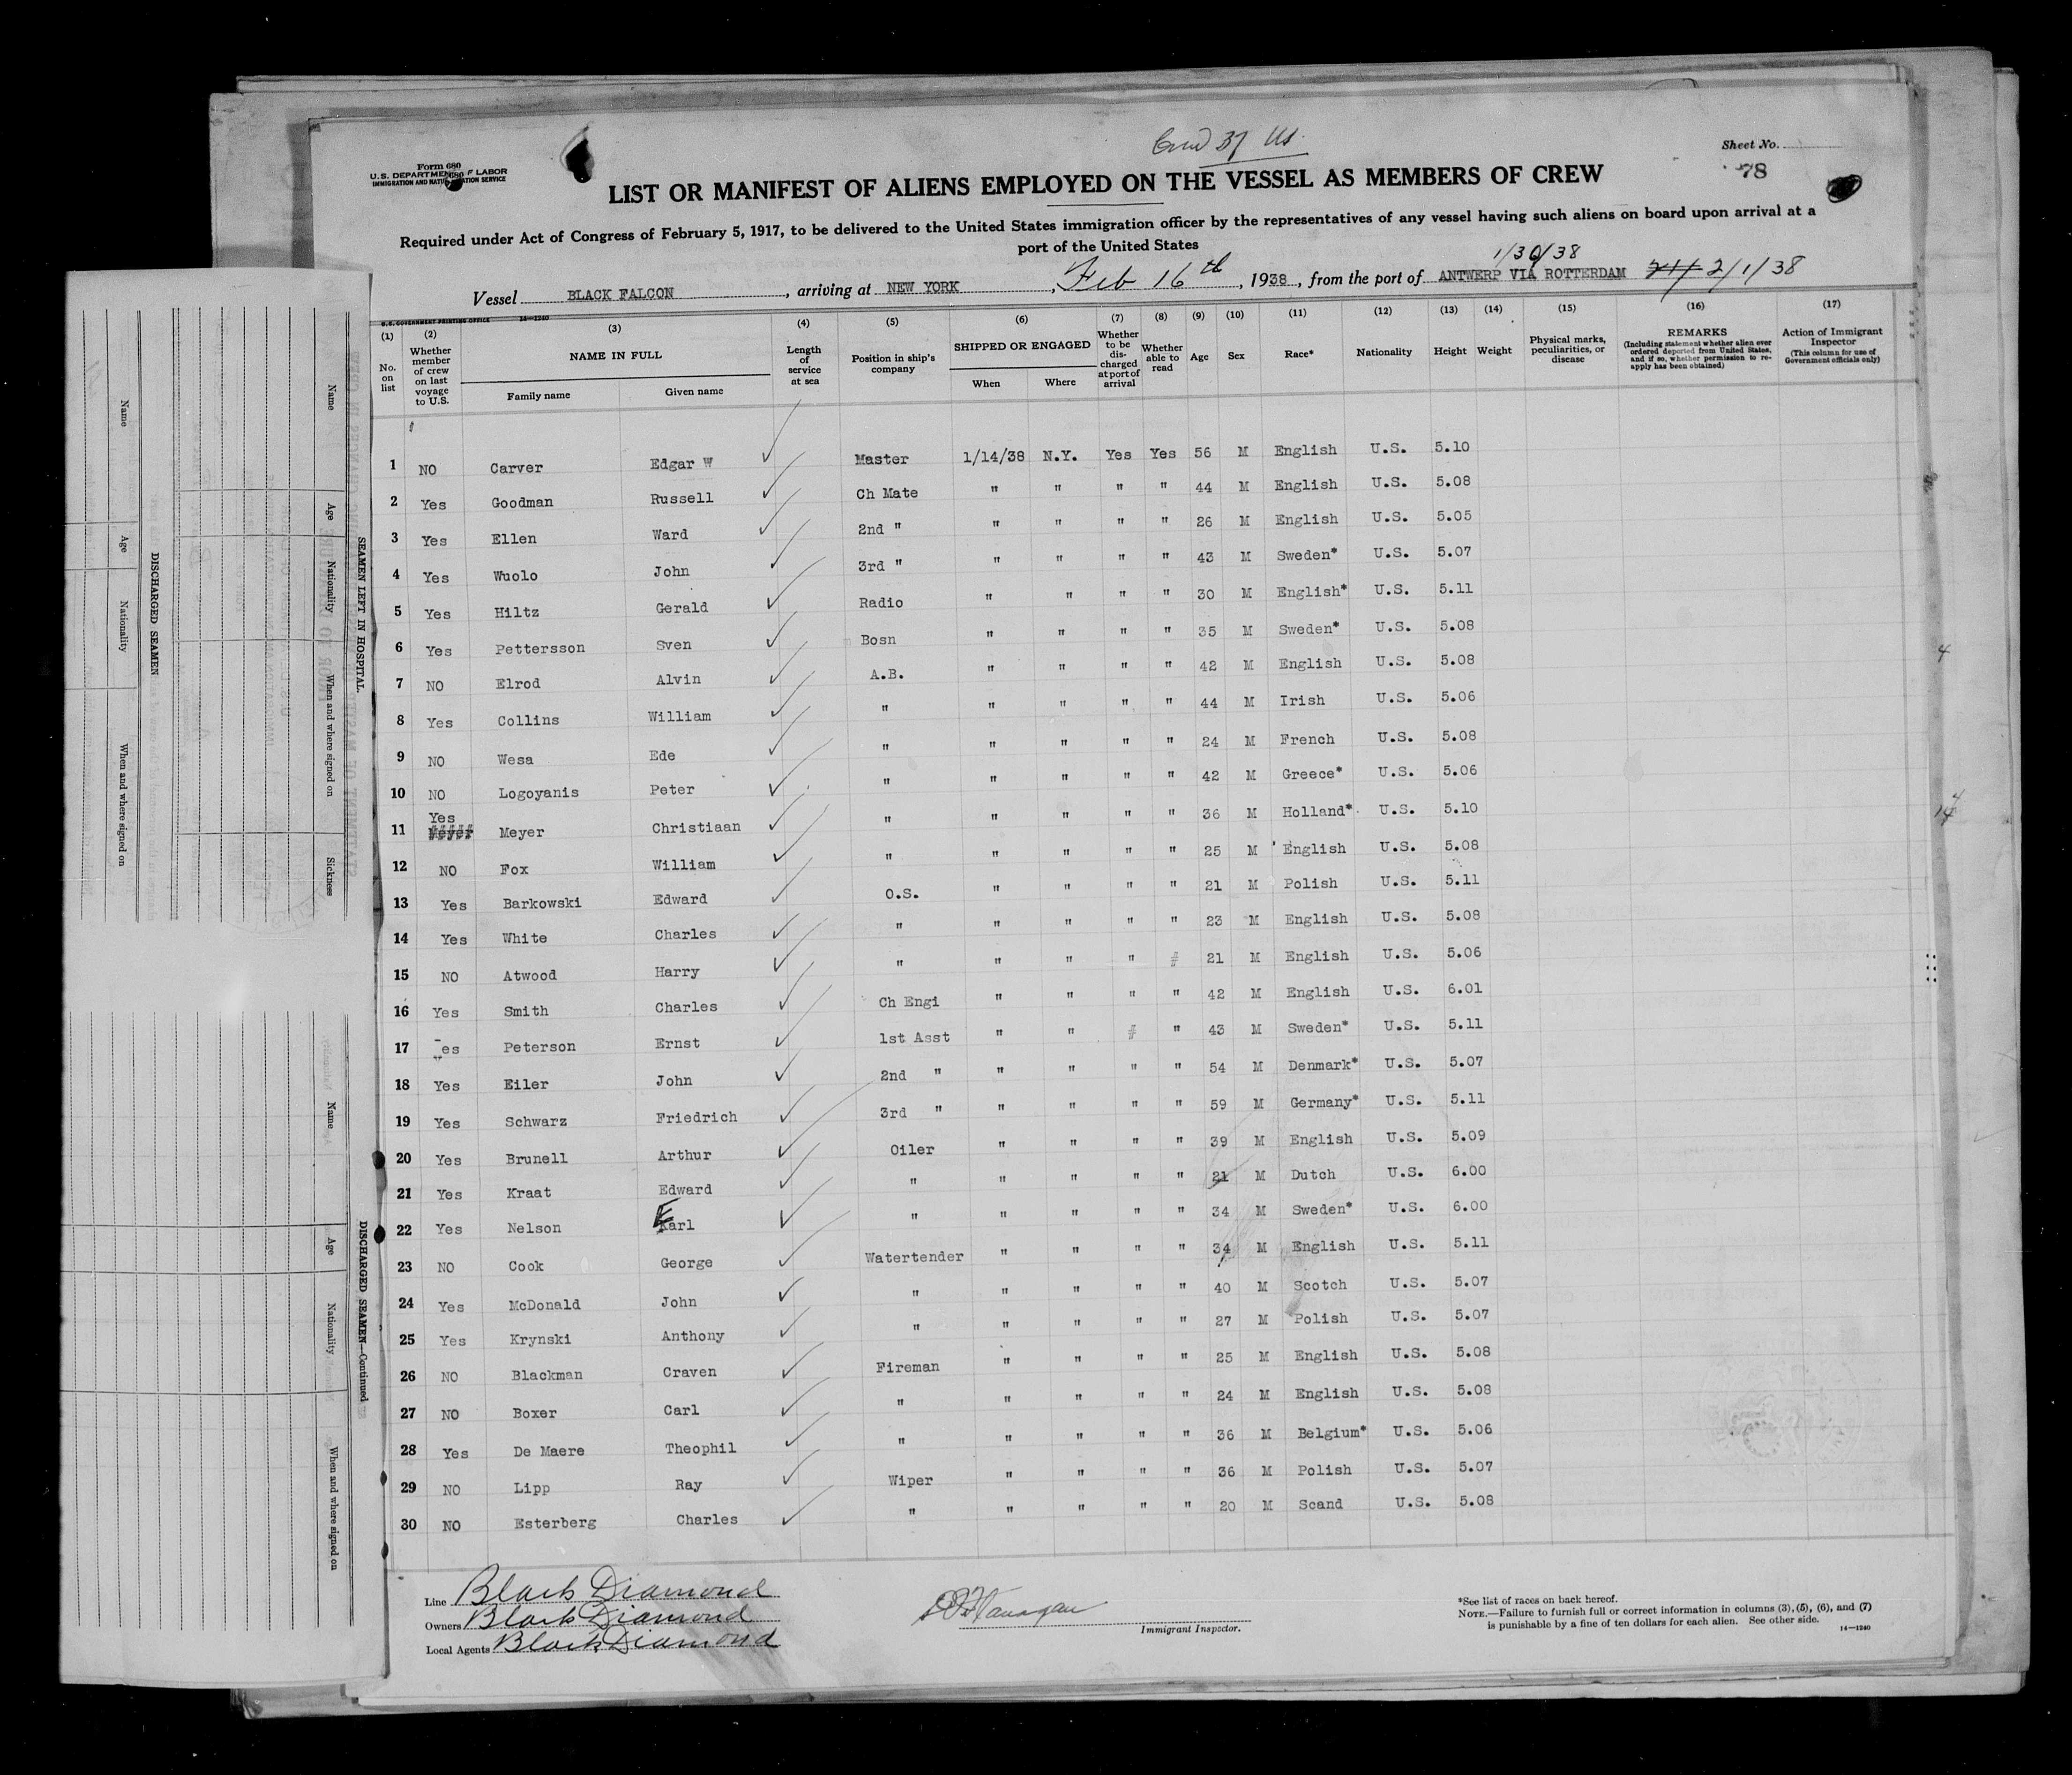 Form 680
U.S. DEPARTMENT OF LABOR
IMMIGRATION AND NATURALIZATION SERVICE
Sheet No.
78
LIST OR MANIFEST OF ALIENS EMPLOYED ON THE VESSEL AS MEMBERS OF CREW
Required under Act of Congress of February 5, 1917, to be delivered to the United States immigration officer by the representatives of any vessel having such aliens on board upon arrival at a
port of the United States
1/30/38
Vessel BLACK FALCON, arriving at NEW YORK, Feb 16th, 1938, from the port of ANTWERP VIA ROTTERDAM 2/1/38
U.S. GOVERNMENT PRINTING OFFICE 14—1240
(1) (2) (3) (4) (5) (6) (7) (8) (9) (10) (11) (12) (13) (14) (15) (16) (17)
No. on list
Whether member of crew on last voyage to U.S.
NAME IN FULL
Family name Given name
Length of service at sea
Position in ship's company
SHIPPED OR ENGAGED
When Where
Whether to be discharged at port of arrival
Whether able to read
Age
Sex
Race*
Nationality
Height
Weight
Physical marks, peculiarities, or disease
REMARKS
(Including statement whether alien ever ordered deported from United States, and if so, whether permission to reapply has been obtained)
Action of Immigrant Inspector
(This column for use of Government officials only)
1 NO Carver Edgar W Master 1/14/38 N.Y. Yes Yes 56 M English U.S. 5.10
2 Yes Goodman Russell Ch Mate " " " " 44 M English U.S. 5.08
3 Yes Ellen Ward 2nd " " " " " 26 M English U.S. 5.05
4 Yes Wuolo John 3rd " " " " " 43 M Sweden* U.S. 5.07
5 Yes Hiltz Gerald Radio " " " " 30 M English* U.S. 5.11
6 Yes Pettersson Sven Bosn " " " " 35 M Sweden* U.S. 5.08
7 NO Elrod Alvin A.B. " " " " 42 M English U.S. 5.08
8 Yes Collins William " " " " " 44 M Irish U.S. 5.06
9 NO Wesa Ede " " " " " 24 M French U.S. 5.08
10 NO Logoyanis Peter " " " " " 42 M Greece* U.S. 5.06
11 Yes Meyer Christiaan " " " " " 36 M Holland* U.S. 5.10
12 NO Fox William " " " " " 25 M English U.S. 5.08
13 Yes Barkowski Edward O.S. " " " " 21 M Polish U.S. 5.11
14 Yes White Charles " " " " " 23 M English U.S. 5.08
15 NO Atwood Harry " " " " # 21 M English U.S. 5.06
16 Yes Smith Charles Ch Engi " " " " 42 M English U.S. 6.01
17 Yes Peterson Ernst 1st Asst " " # " 43 M Sweden* U.S. 5.11
18 Yes Eiler John 2nd " " " " " 54 M Denmark* U.S. 5.07
19 Yes Schwarz Friedrich 3rd " " " " " 59 M Germany* U.S. 5.11
20 Yes Brunell Arthur Oiler " " " " 39 M English U.S. 5.09
21 Yes Kraat Edward " " " " " 21 M Dutch U.S. 6.00
22 Yes Nelson Earl " " " " " 34 M Sweden* U.S. 6.00
23 NO Cook George Watertender " " " " 34 M English U.S. 5.11
24 Yes McDonald John " " " " " 40 M Scotch U.S. 5.07
25 Yes Krynski Anthony " " " " " 27 M Polish U.S. 5.07
26 NO Blackman Craven Fireman " " " " 25 M English U.S. 5.08
27 NO Boxer Carl " " " " " 24 M English U.S. 5.08
28 Yes De Maere Theophil " " " " " 36 M Belgium* U.S. 5.06
29 NO Lipp Ray Wiper " " " " 36 M Polish U.S. 5.07
30 NO Esterberg Charles " " " " " 20 M Scand U.S. 5.08
Line Black Diamond
Owners Black Diamond
Local Agents Black Diamond
Immigrant Inspector.
*See list of races on back hereof.
NOTE.—Failure to furnish full or correct information in columns (3), (5), (6), and (7)
is punishable by a fine of ten dollars for each alien. See other side.
14—1240
SEAMEN LEFT IN HOSPITAL
Name Age Nationality When and where signed on Sickness
DISCHARGED SEAMEN
Name Age Nationality When and where signed on
DISCHARGED SEAMEN—Continued
Name Age Nationality When and where signed on